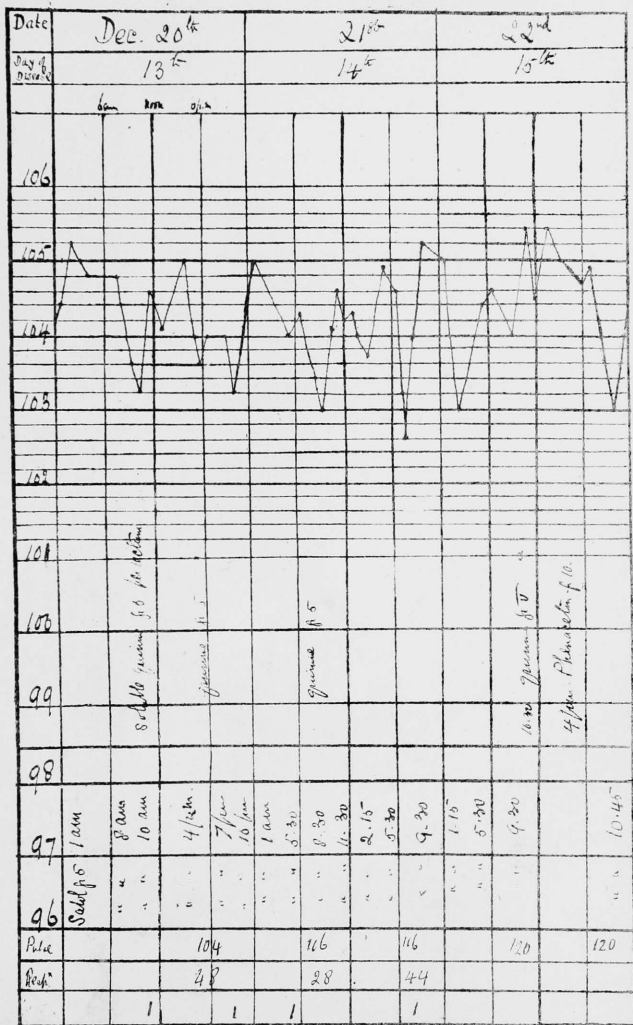 Date Dec. 20th 21st 22nd
Day of Disease 13th 14th 15th
6am Noon 6p.m
106
105
104
103
102
101
100
99
98
97
96
Soluble quinine gr 5 per rectum
quinine gr 5
quinine gr 5
10.30 quinine gr V
4 p.m. Phenacetin gr 10.
Salol gr 5 1 am
" " 8 am
" " 10 am
" " 4 p.m.
" " 7 pm
" " 10 pm
" " 1 am
" " 5.30
" " 8.30
" " 11.30
" " 2.15
" " 5.30
" " 9.30
" " 1.15
" " 5.30
" " 9.30
" " 10.45
Pulse 104 116 116 120 120
Respn 48 28 44
1 1 1 1